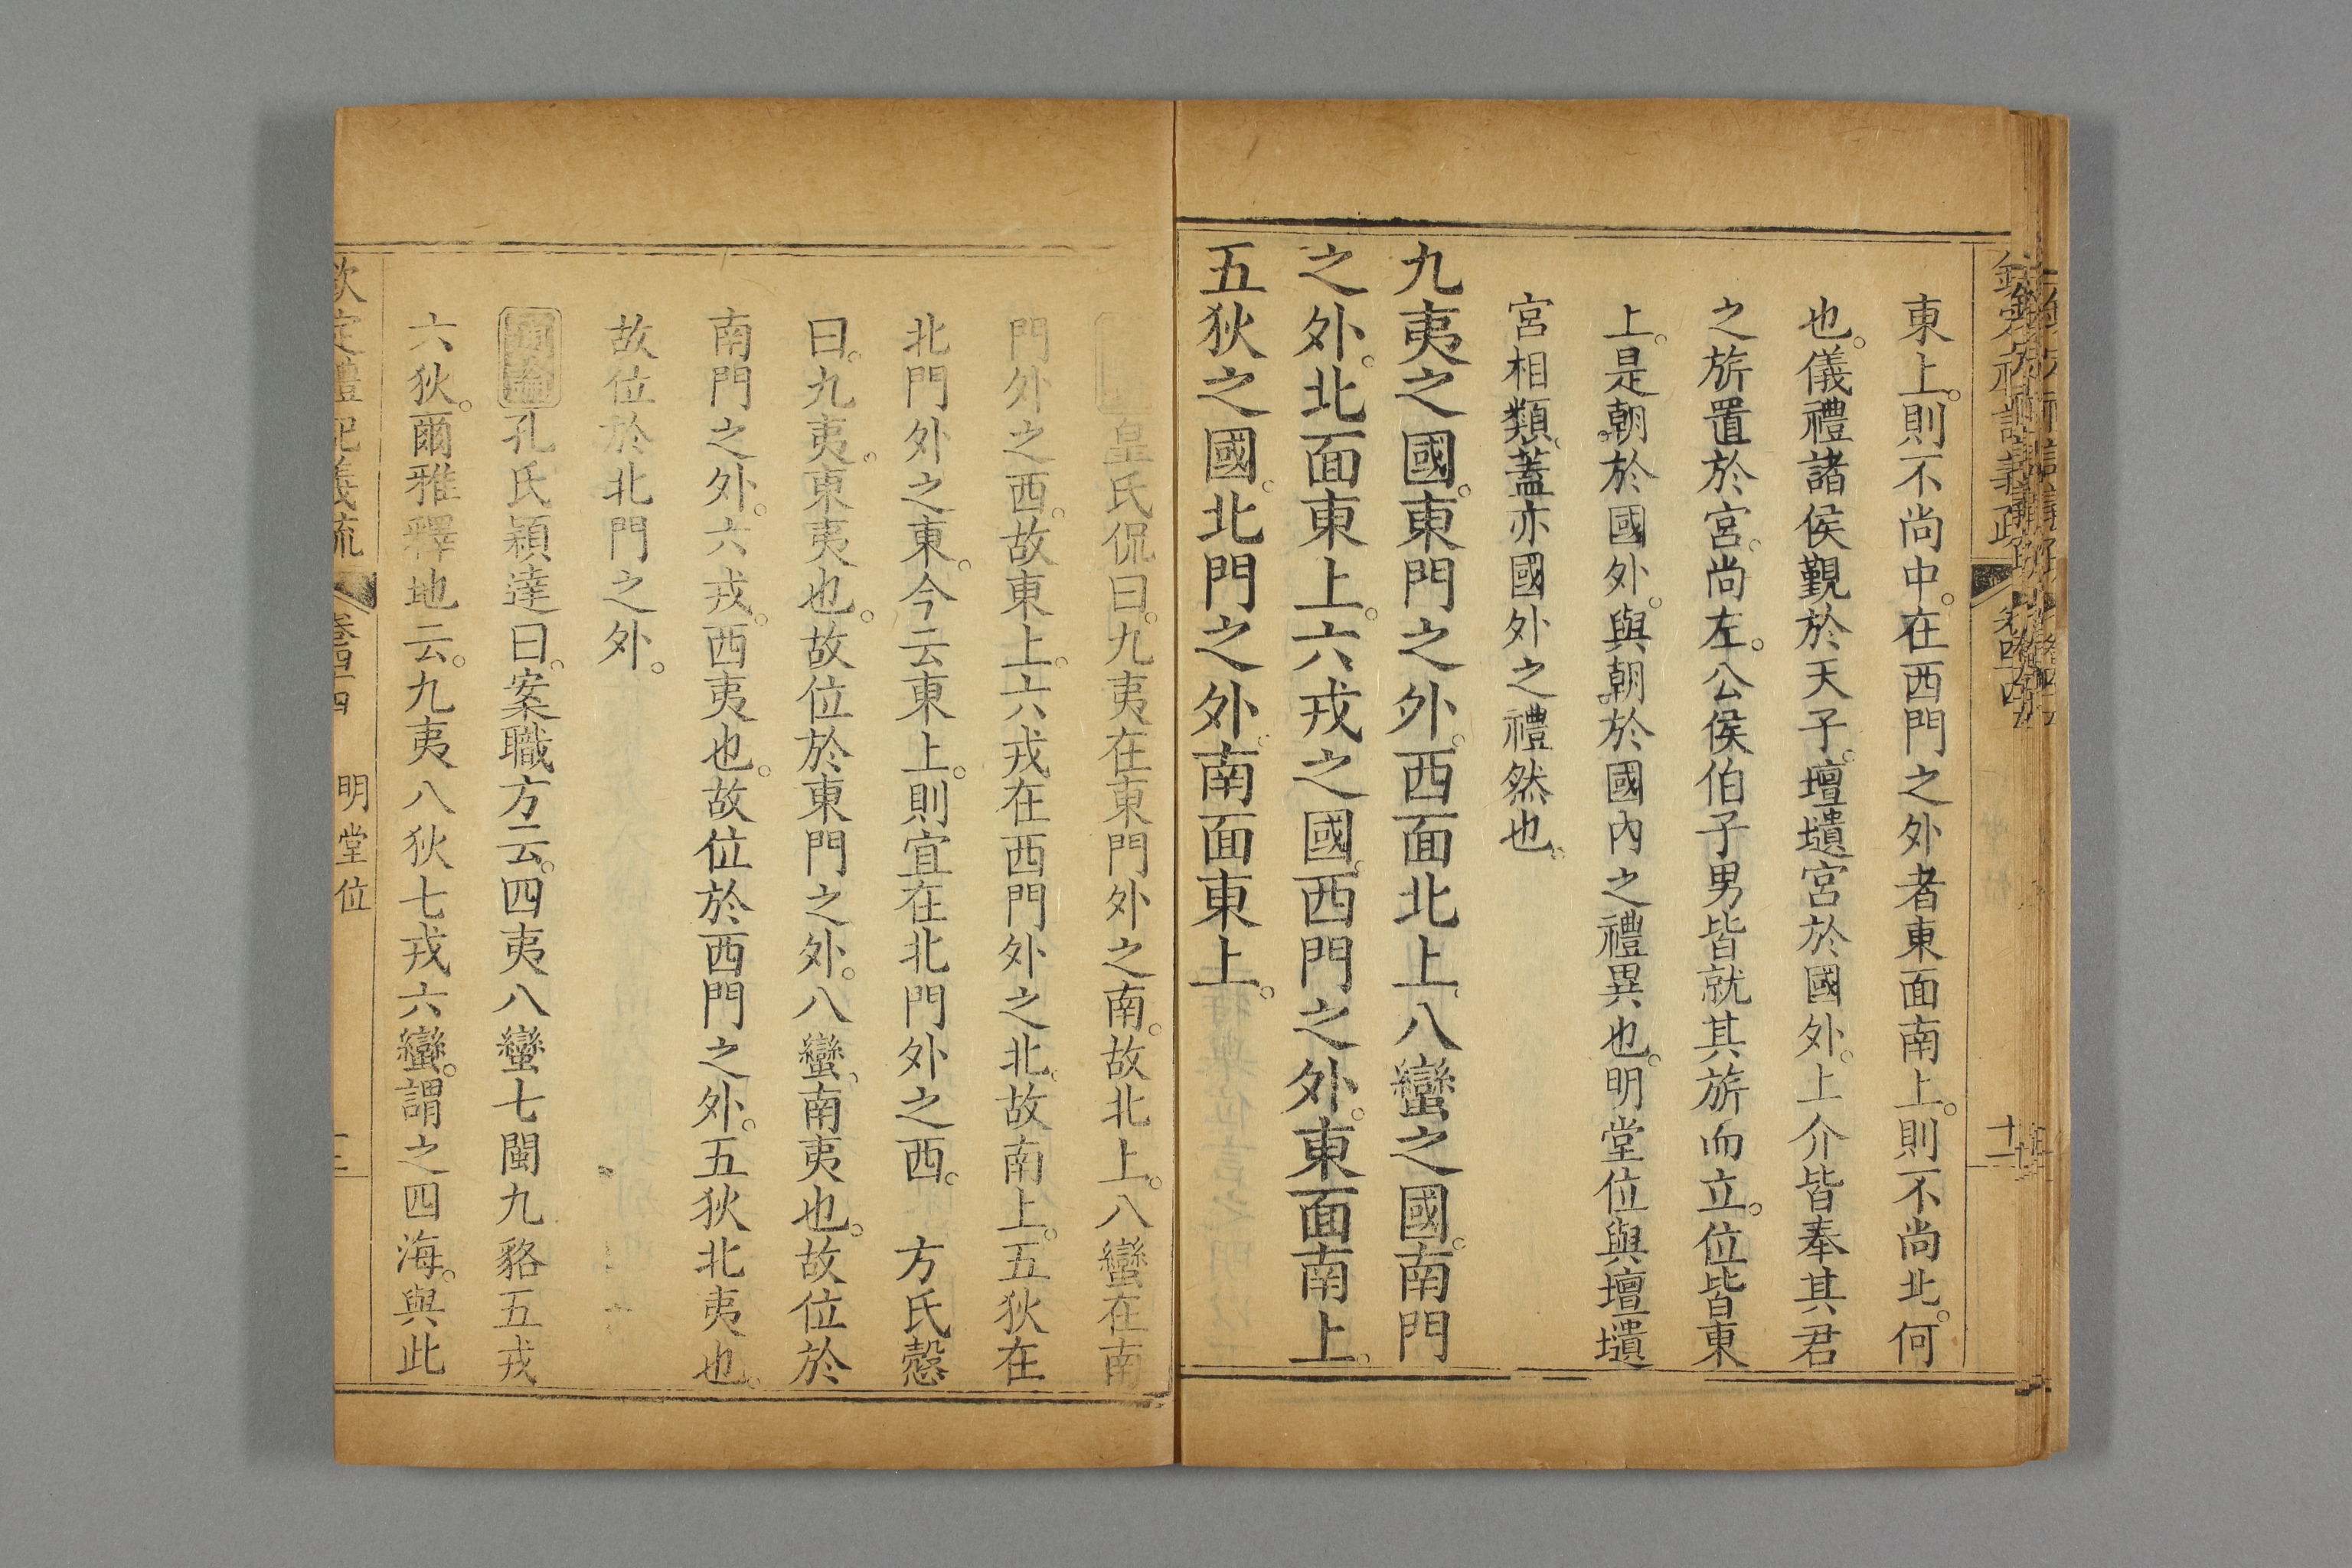 東上。則不尚中。在西門之外者東面南上。則不尚北。何
也。儀禮諸侯覲於天子。壇壝宮於國外。上介皆奉其君
之旂置於宮。尚左。公侯伯子男皆就其旂而立。位皆東
上。是朝於國外。與朝於國內之禮異也。明堂位與壇壝
宮相類。蓋亦國外之禮然也。
九夷之國。東門之外。西面北上。八蠻之國。南門
之外。北面東上。六戎之國。西門之外。東面南上。
五狄之國。北門之外。南面東上。
皇氏侃曰。九夷在東門外之南。故北上。八蠻在南
門外之西。故東上。六戎在西門外之北。故南上。五狄在
北門外之東。今云東上。則宜在北門外之西。 方氏慤
曰。九夷。東夷也。故位於東門之外。八蠻。南夷也。故位於
南門之外。六戎。西夷也。故位於西門之外。五狄北夷也。
故位於北門之外。
孔氏穎達曰。案職方云。四夷八蠻七閩九貉五戎
六狄。爾雅釋地云。九夷八狄七戎六蠻。謂之四海。與此
欽定禮記義疏 卷四十四 明堂位